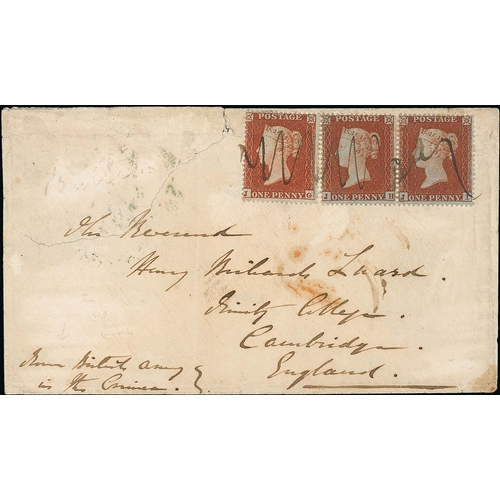 POSTAGE POSTAGE POSTAGE
J G ONE PENNY J H ONE PENNY J I ONE PENNY
The Reverend
Henry Richards Luard.
Trinity College.
Cambridge.
England.
From British army
in the Crimea.